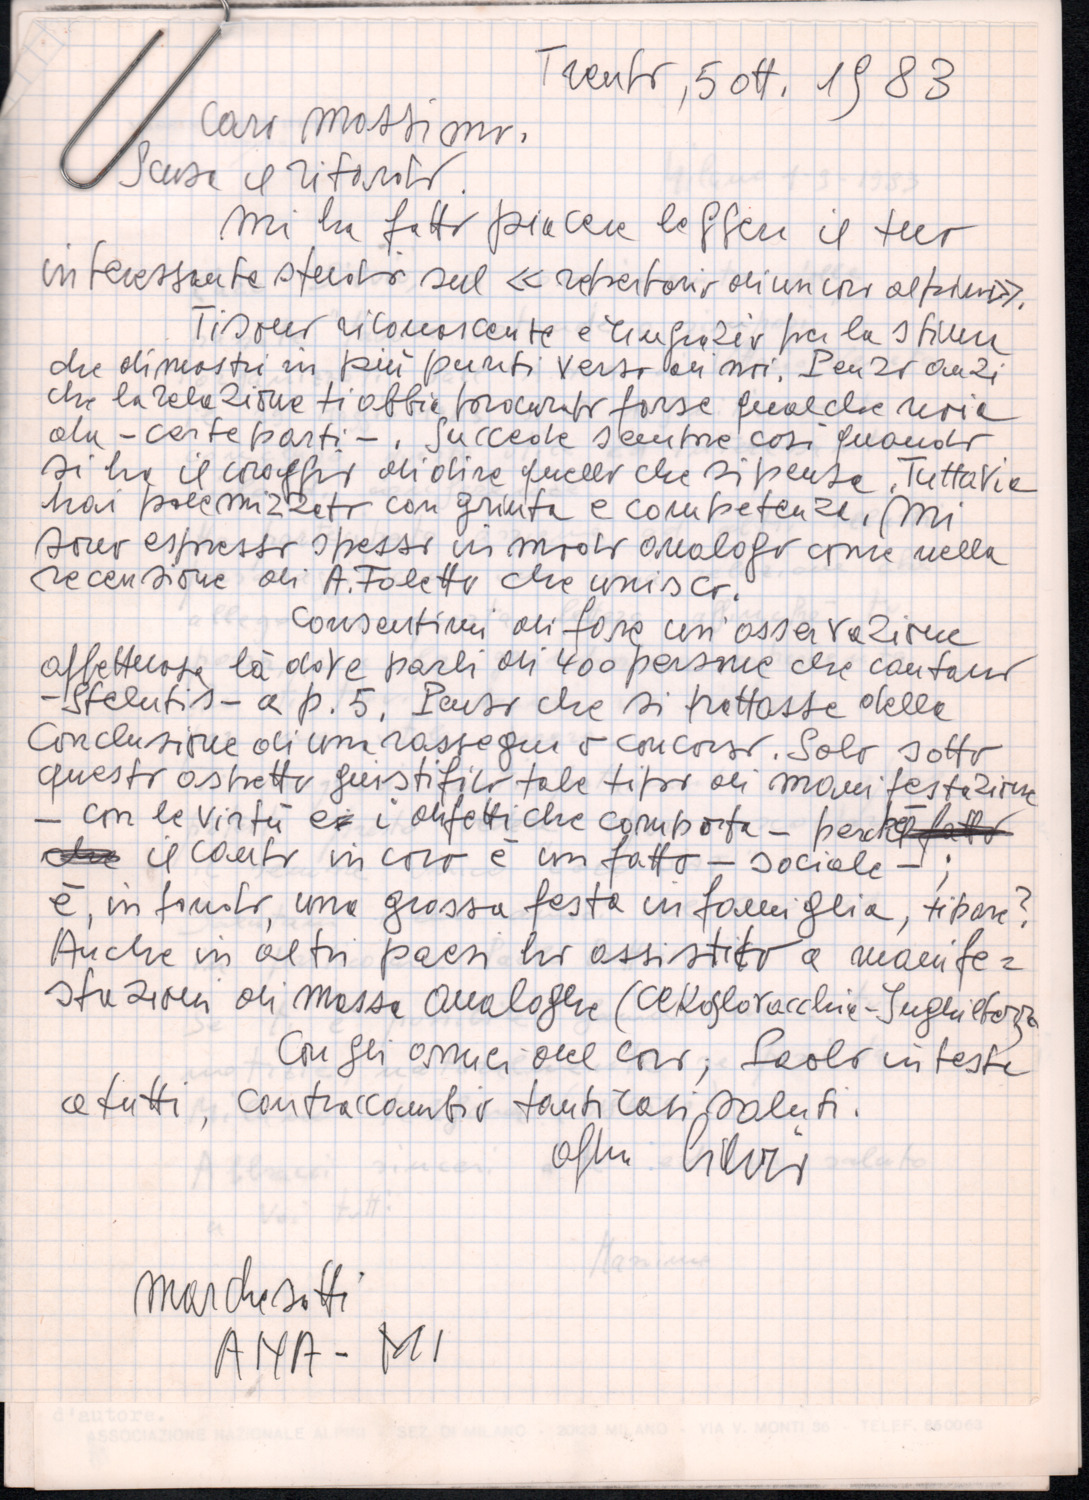 Trento, 5 ott. 1983
Caro Massimo.
Scusa il ritardo.
Mi ha fatto piacere leggere il tuo
interessante studio sul « repertorio di un coro alpino».
Ti sono riconoscente e ringrazio per la stima
che dimostri in più punti verso di noi. Penso anzi
che la relazione ti abbia procurato forse qualche noia
da - certe parti - . Succede sempre così quando
si ha il coraggio di dire quello che si pensa. Tuttavia
hai polemizzato con grinta e competenza. Mi
sono espresso spesso in modo analogo come nella
recensione di A. Foletto che unisco.
Consentimi di fare un'osservazione
affettuosa là dove parli di 400 persone che cantano
- Stelutis - a p. 5. Penso che si trattasse della
conclusione di una rassegna o concorso. Solo sotto
questo aspetto giustifico tale tipo di manifestazione
- con le virtù e i difetti che comporta - perchè fatto
che il canto in coro è un fatto - sociale - ;
è, in fondo, una grossa festa in famiglia, ti pare?
Anche in altri paesi ho assistito a manife=
stazioni di massa analoghe (Cekoslovacchia - Inghilterra
Con gli amici del coro; Paolo in testa
a tutti, contraccambio tanti cari saluti.
Marchesotti
ANA - MI
d'autore.
ASSOCIAZIONE NAZIONALE ALPINI - SEZ. DI MILANO - MILANO - VIA V. MONTI 36 - TELEF.